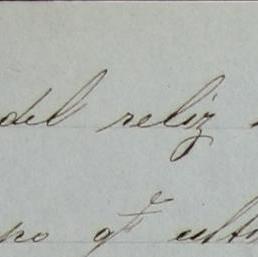 del reliz
po qᵉ ultim